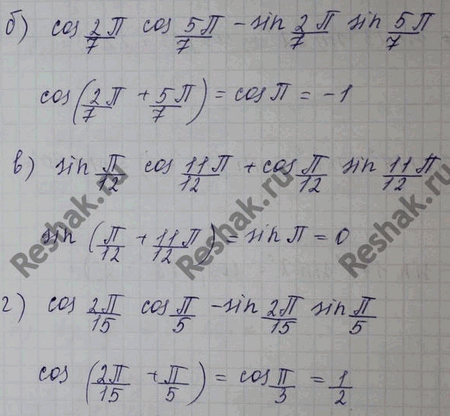 б) cos 2π/7 cos 5π/7 - sin 2π/7 sin 5π/7
cos(2π/7 + 5π/7) = cos π = -1
в) sin π/12 cos 11π/12 + cos π/12 sin 11π/12
sin (π/12 + 11π/12) = sin π = 0
г) cos 2π/15 cos π/5 - sin 2π/15 sin π/5
cos (2π/15 + π/5) = cos π/3 = 1/2
Reshak.ru
Reshak.ru